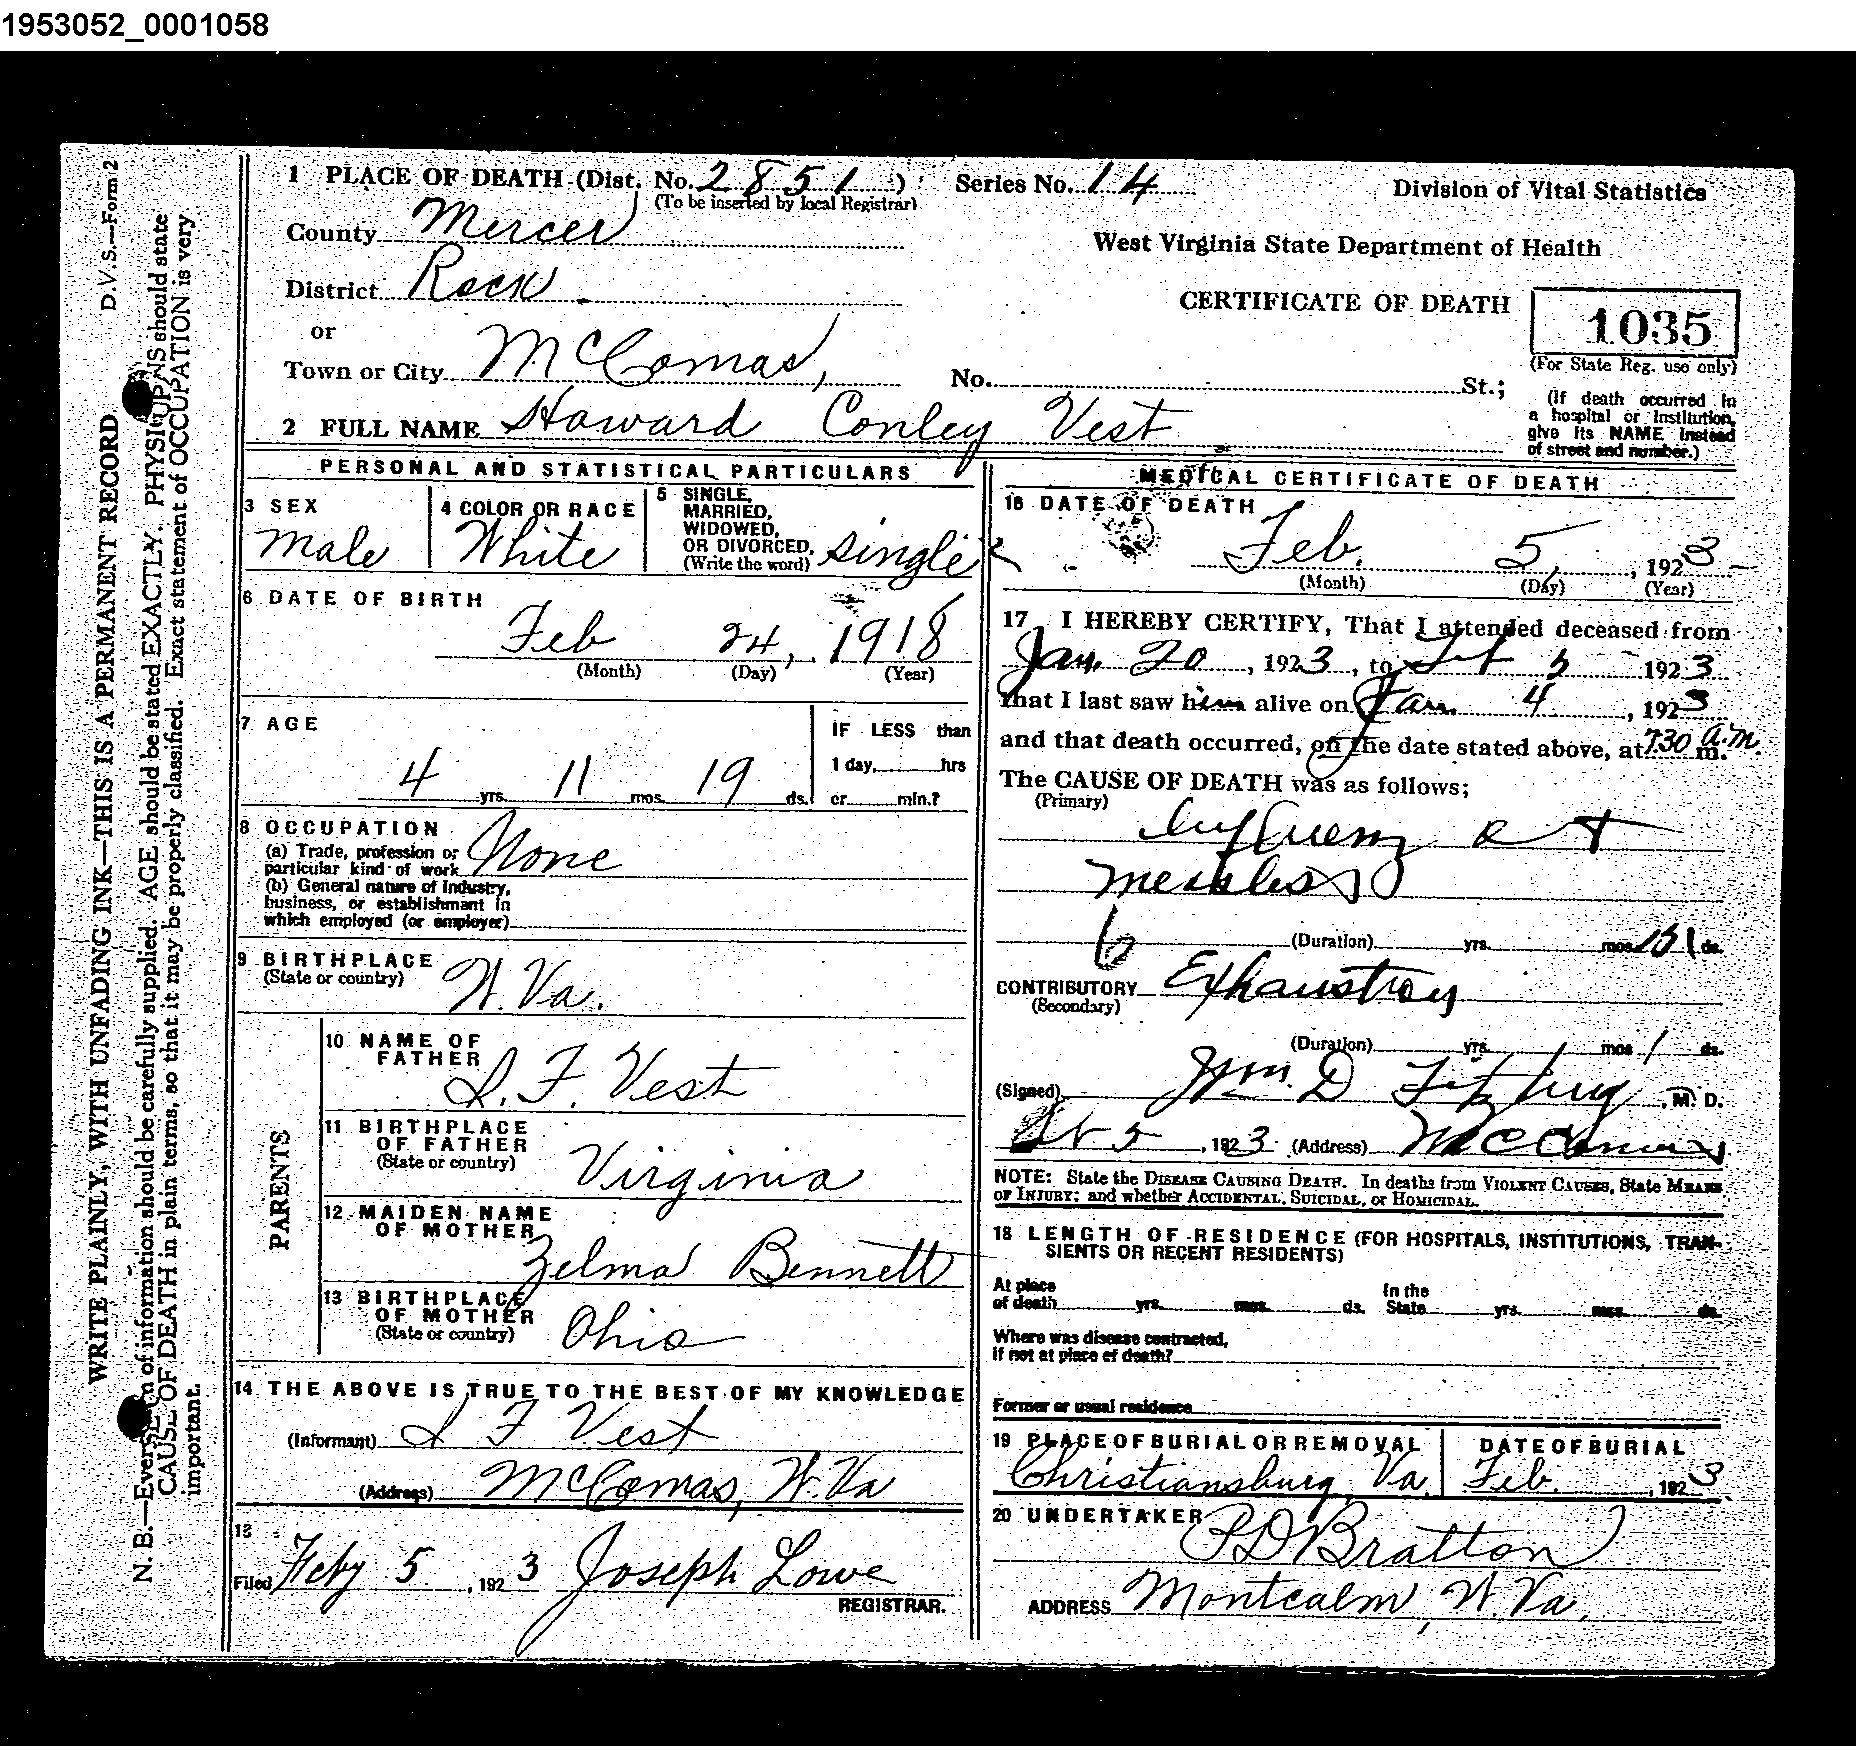 1953052_0001058
D.V.S.—Form 2
WRITE PLAINLY, WITH UNFADING INK—THIS IS A PERMANENT RECORD
N. B.—Every item of information should be carefully supplied. AGE should be stated EXACTLY. PHYSICIANS should state
CAUSE OF DEATH in plain terms, so that it may be properly classified. Exact statement of OCCUPATION is very
important.
1 PLACE OF DEATH (Dist. No. 2851) Series No. 14 Division of Vital Statistics
(To be inserted by local Registrar)
County Mercer
West Virginia State Department of Health
District Rock
CERTIFICATE OF DEATH 1035
(For State Reg. use only)
or
Town or City McComas, No. St.;
(If death occurred in
a hospital or institution,
give its NAME instead
of street and number.)
2 FULL NAME Howard Conley Vest
PERSONAL AND STATISTICAL PARTICULARS
3 SEX
Male
4 COLOR OR RACE
White
5 SINGLE,
MARRIED,
WIDOWED,
OR DIVORCED,
(Write the word) single
6 DATE OF BIRTH
Feb 24, 1918
(Month) (Day) (Year)
7 AGE
4 yrs. 11 mos. 19 ds.
IF LESS than
1 day, hrs
or min.?
8 OCCUPATION
(a) Trade, profession or
particular kind of work None
(b) General nature of industry,
business, or establishment in
which employed (or employer)
9 BIRTHPLACE
(State or country) W. Va.
PARENTS
10 NAME OF
FATHER
F. Vest
11 BIRTHPLACE
OF FATHER
(State or country) Virginia
12 MAIDEN NAME
OF MOTHER
Zelma Bennett
13 BIRTHPLACE
OF MOTHER
(State or country) Ohio
14 THE ABOVE IS TRUE TO THE BEST OF MY KNOWLEDGE
(Informant) F Vest
(Address) McComas, W. Va
15
Filed Feby 5, 1923 Joseph Lowe
REGISTRAR.
MEDICAL CERTIFICATE OF DEATH
16 DATE OF DEATH
Feb. 5, 1923
(Month) (Day) (Year)
17 I HEREBY CERTIFY, That I attended deceased from
Jan. 20, 1923, to Feb 5 1923
that I last saw him alive on Jan. 4, 1923
and that death occurred, on the date stated above, at 7:30 a.m. m.
The CAUSE OF DEATH was as follows:
(Primary)
Influenza
measles
(Duration) yrs. mos. ds.
CONTRIBUTORY Exhaustion
(Secondary)
(Duration) yrs. mos 1 ds.
(Signed) Wm. D Fitzhug, M. D.
Feb 5, 1923 (Address) McComas
NOTE: State the DISEASE CAUSING DEATH. In deaths from VIOLENT CAUSES, State MEANS
OF INJURY; and whether ACCIDENTAL, SUICIDAL, or HOMICIDAL.
18 LENGTH OF RESIDENCE (FOR HOSPITALS, INSTITUTIONS, TRAN-
SIENTS OR RECENT RESIDENTS)
At place
of death yrs. mos. ds.
In the
State yrs. mos. ds.
Where was disease contracted,
if not at place of death?
Former or usual residence
19 PLACE OF BURIAL OR REMOVAL
Christiansburg, Va.
DATE OF BURIAL
Feb. , 1923
20 UNDERTAKER
P D Bratton
ADDRESS Montcalm, W. Va.